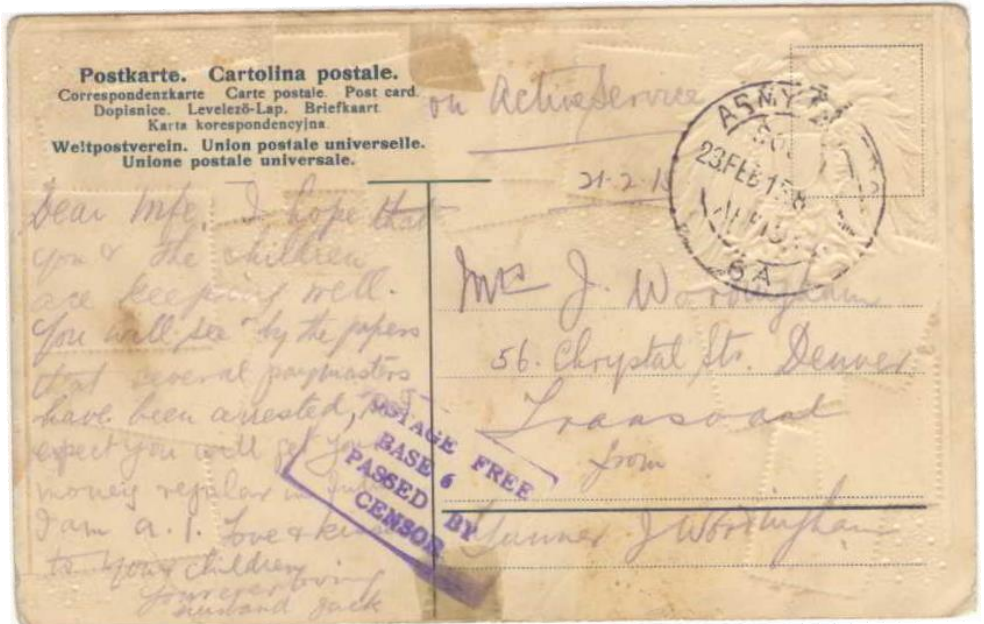 Postkarte. Cartolina postale.
Correspondenzkarte Carte postale. Post card.
Dopisnice. Levelező-Lap. Briefkaart.
Karta korespondencyjna.
Weltpostverein. Union postale universelle.
Unione postale universale.
on Active Service
21.2.15
ARMY
23.FEB 15
6A
Dear Wife, I hope that
you & the children
are keeping well.
You will see by the papers
that several paymasters
have been arrested,
expect you will get your
money regular in
I am a.1. Love &
to you & children
Your ever loving
husband Jack
Mrs J. Wordingham
56. Chrystal Str. Denver
Transvaal
from
Gunner J Wordingham
POSTAGE FREE
BASE 6
PASSED BY
CENSOR